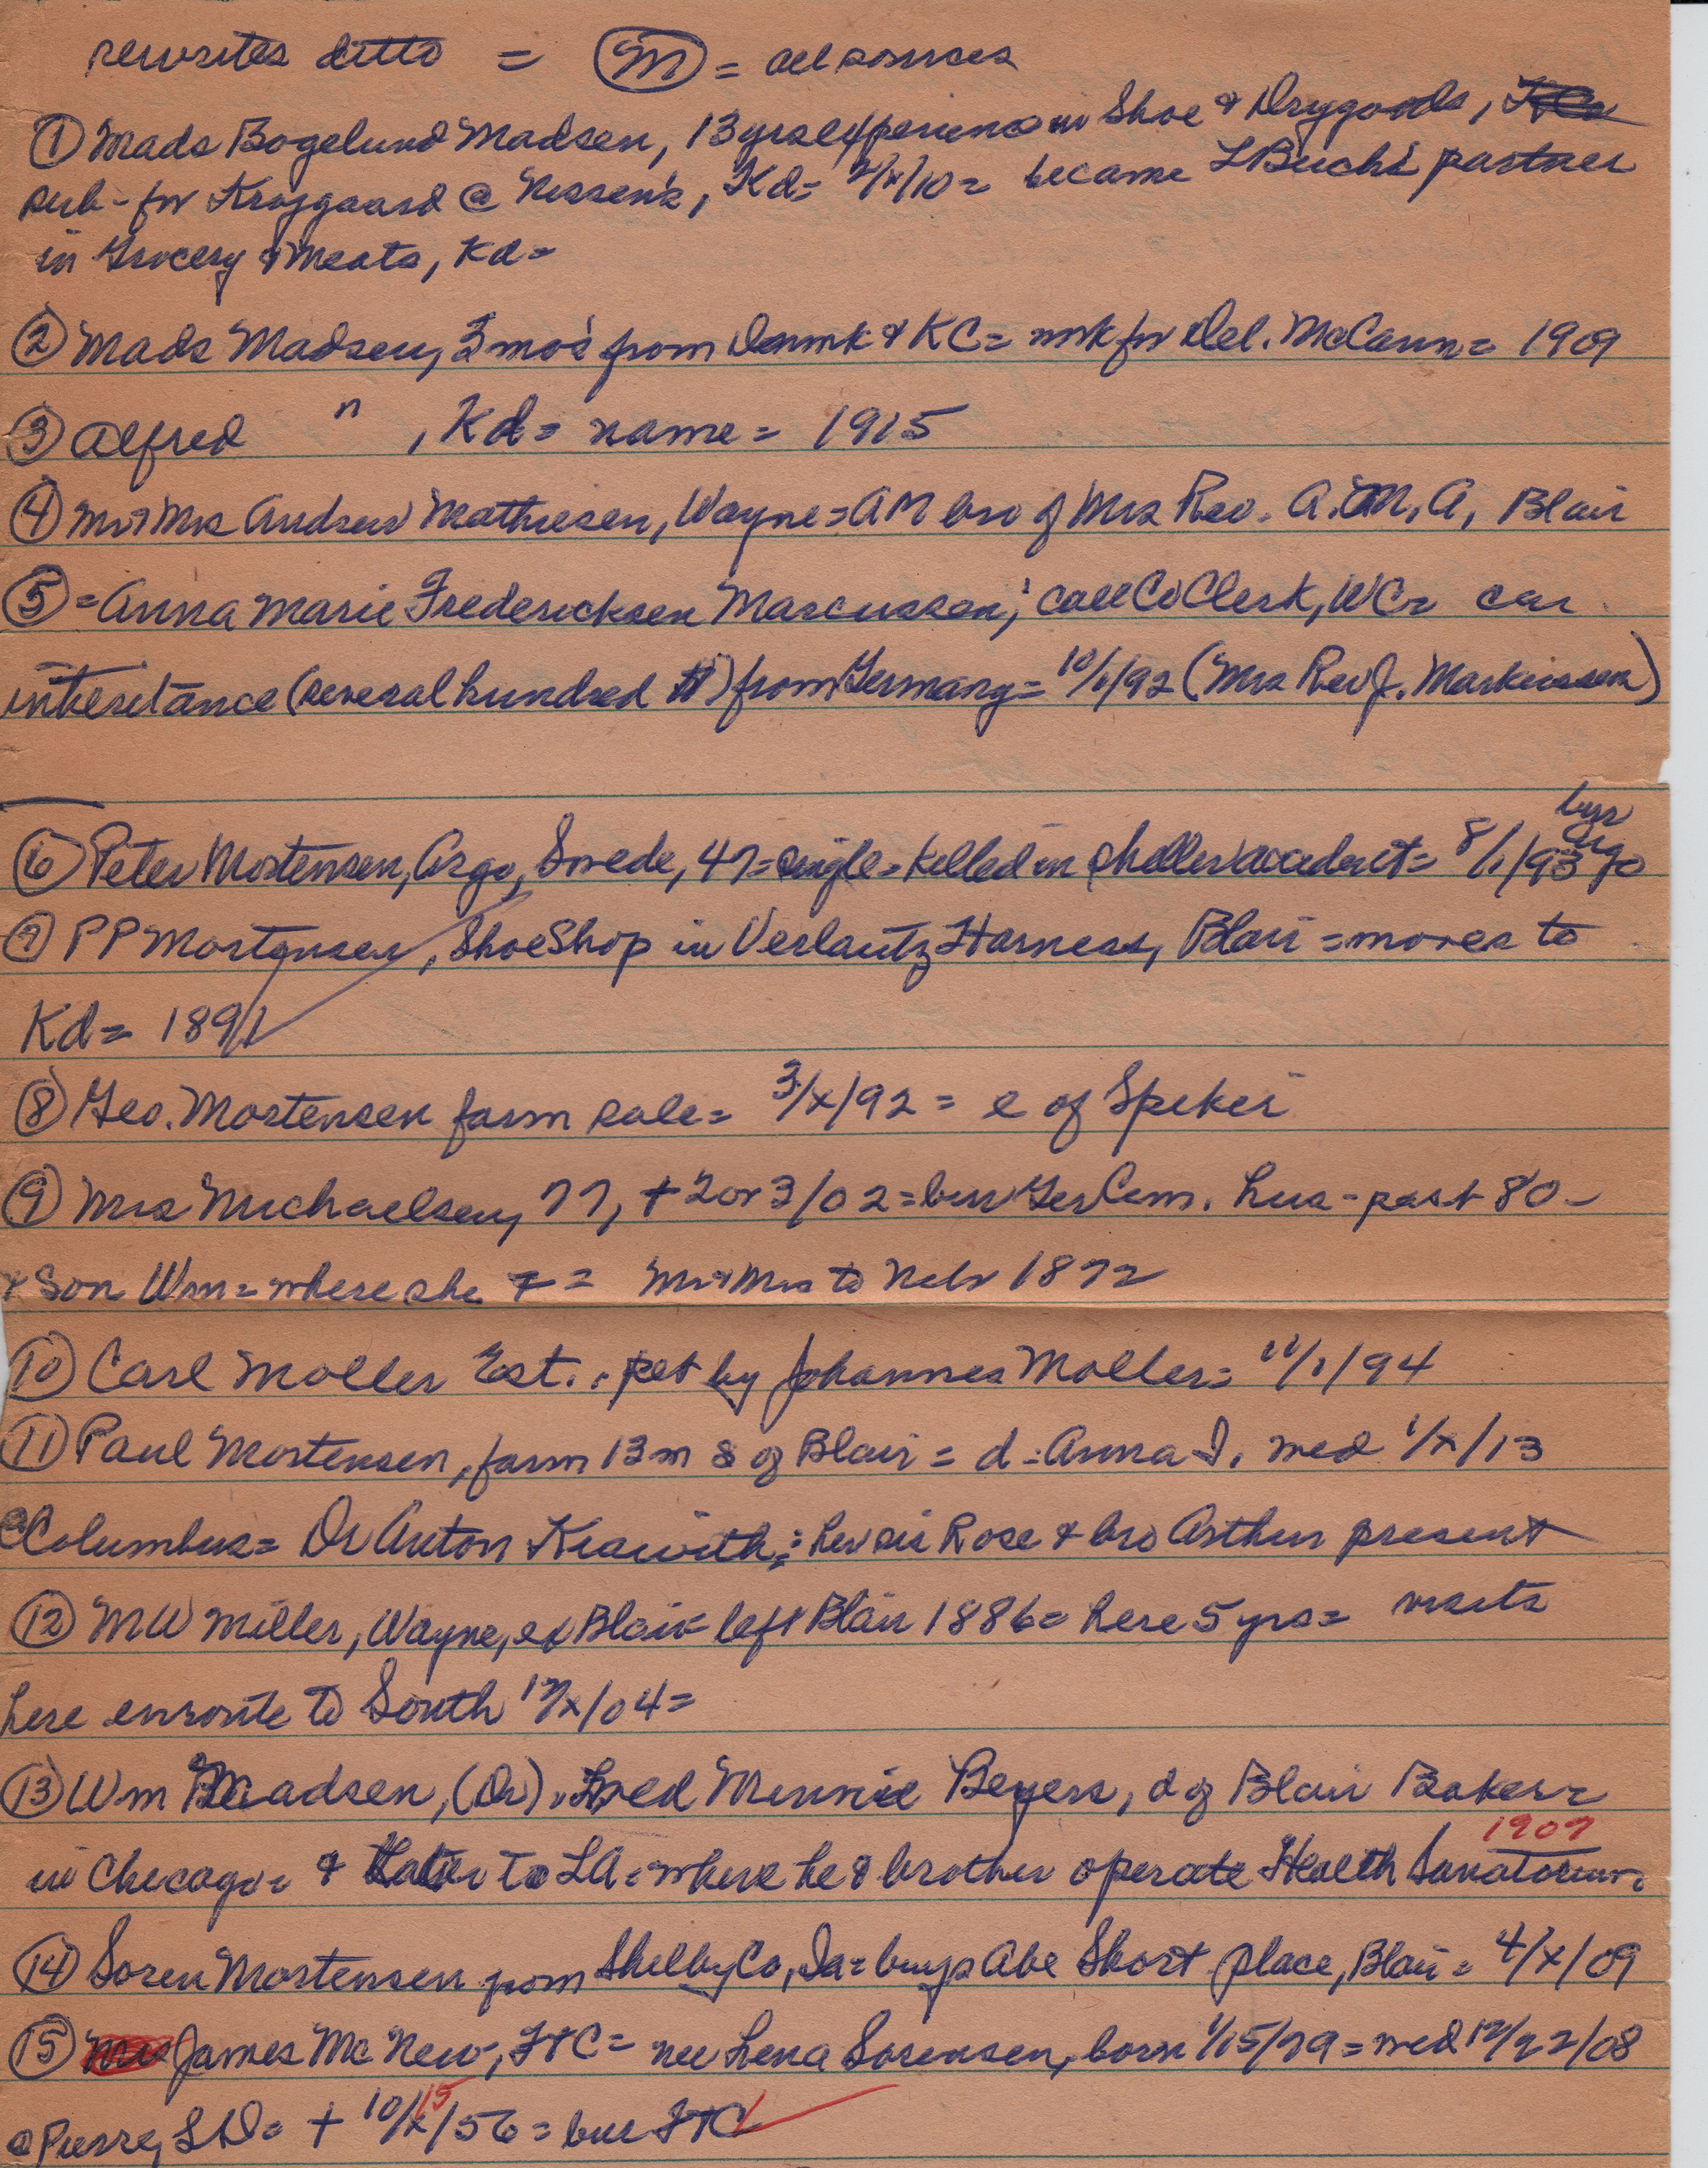 rewrites ditto = (M) = all sources
① Mads Bogelund Madsen, 13 yrs experience in Shoe & Drygoods,
sub- for Krojgaard @ Nissen's, Kd= 2/x/10= became L Buchs partner
in Grocery & Meats, Kd=
② Mads Madsen, 3 mo's from Denmk & KC= work for Del. McCann= 1909
③ Alfred " , Kd= name= 1915
④ Mr & Mrs Andrew Mathiesen, Wayne= AM bro of Mrs Rev. A.M.A, Blair
⑤ = Anna Marie Fredericksen Marcussen, call Co Clerk, WC=
interitance (several hundred #) from Germany= 10/1/92 (Mrs Rev J. Markussen)
bur
Argo
⑥ Peter Mortensen, Argo, Swede, 47= single= killed in sheller accident= 8/1/93
⑦ PP Mortensen, Shoe Shop in Verlautz Harness, Blair = moves to
Kd= 1891
⑧ Geo. Mortensen farm sale= 3/x/92 = e of Spiker
⑨ Mrs Michaelsen, 77, + 2 or 3/02= bur Ger Cem. hus- past 80-
& Son Wm= where she + = Mr & Mrs to Nebr 1872
⑩ Carl Moller Est. pet by Johannes Moller= 11/1/94
⑪ Paul Mortensen, farm 13 m s of Blair = d= Anna I. wed 1/x/13
@ Columbus= Dr Anton = her sis Rose & bro Arthur present
⑫ MW Miller, Wayne, ex Blair= left Blair 1886= here 5 yrs= visits
here enroute to South 12/x/04=
⑬ Wm Madsen, (Dr), wed Minnie Beyers, d of Blair Baker=
1907
in Chicago= & later to LA= where he & brother operate Health Sanatorium.
⑭ Soren Mortensen from Shelby Co, Ia= buys Abe Short place, Blair= 4/x/09
⑮ Mrs James McNew, FtC= nee Lena Sorensen, born 1/15/79= wed 12/22/08
15
@ Pierre, SD= + 10/x/56= bur FtC